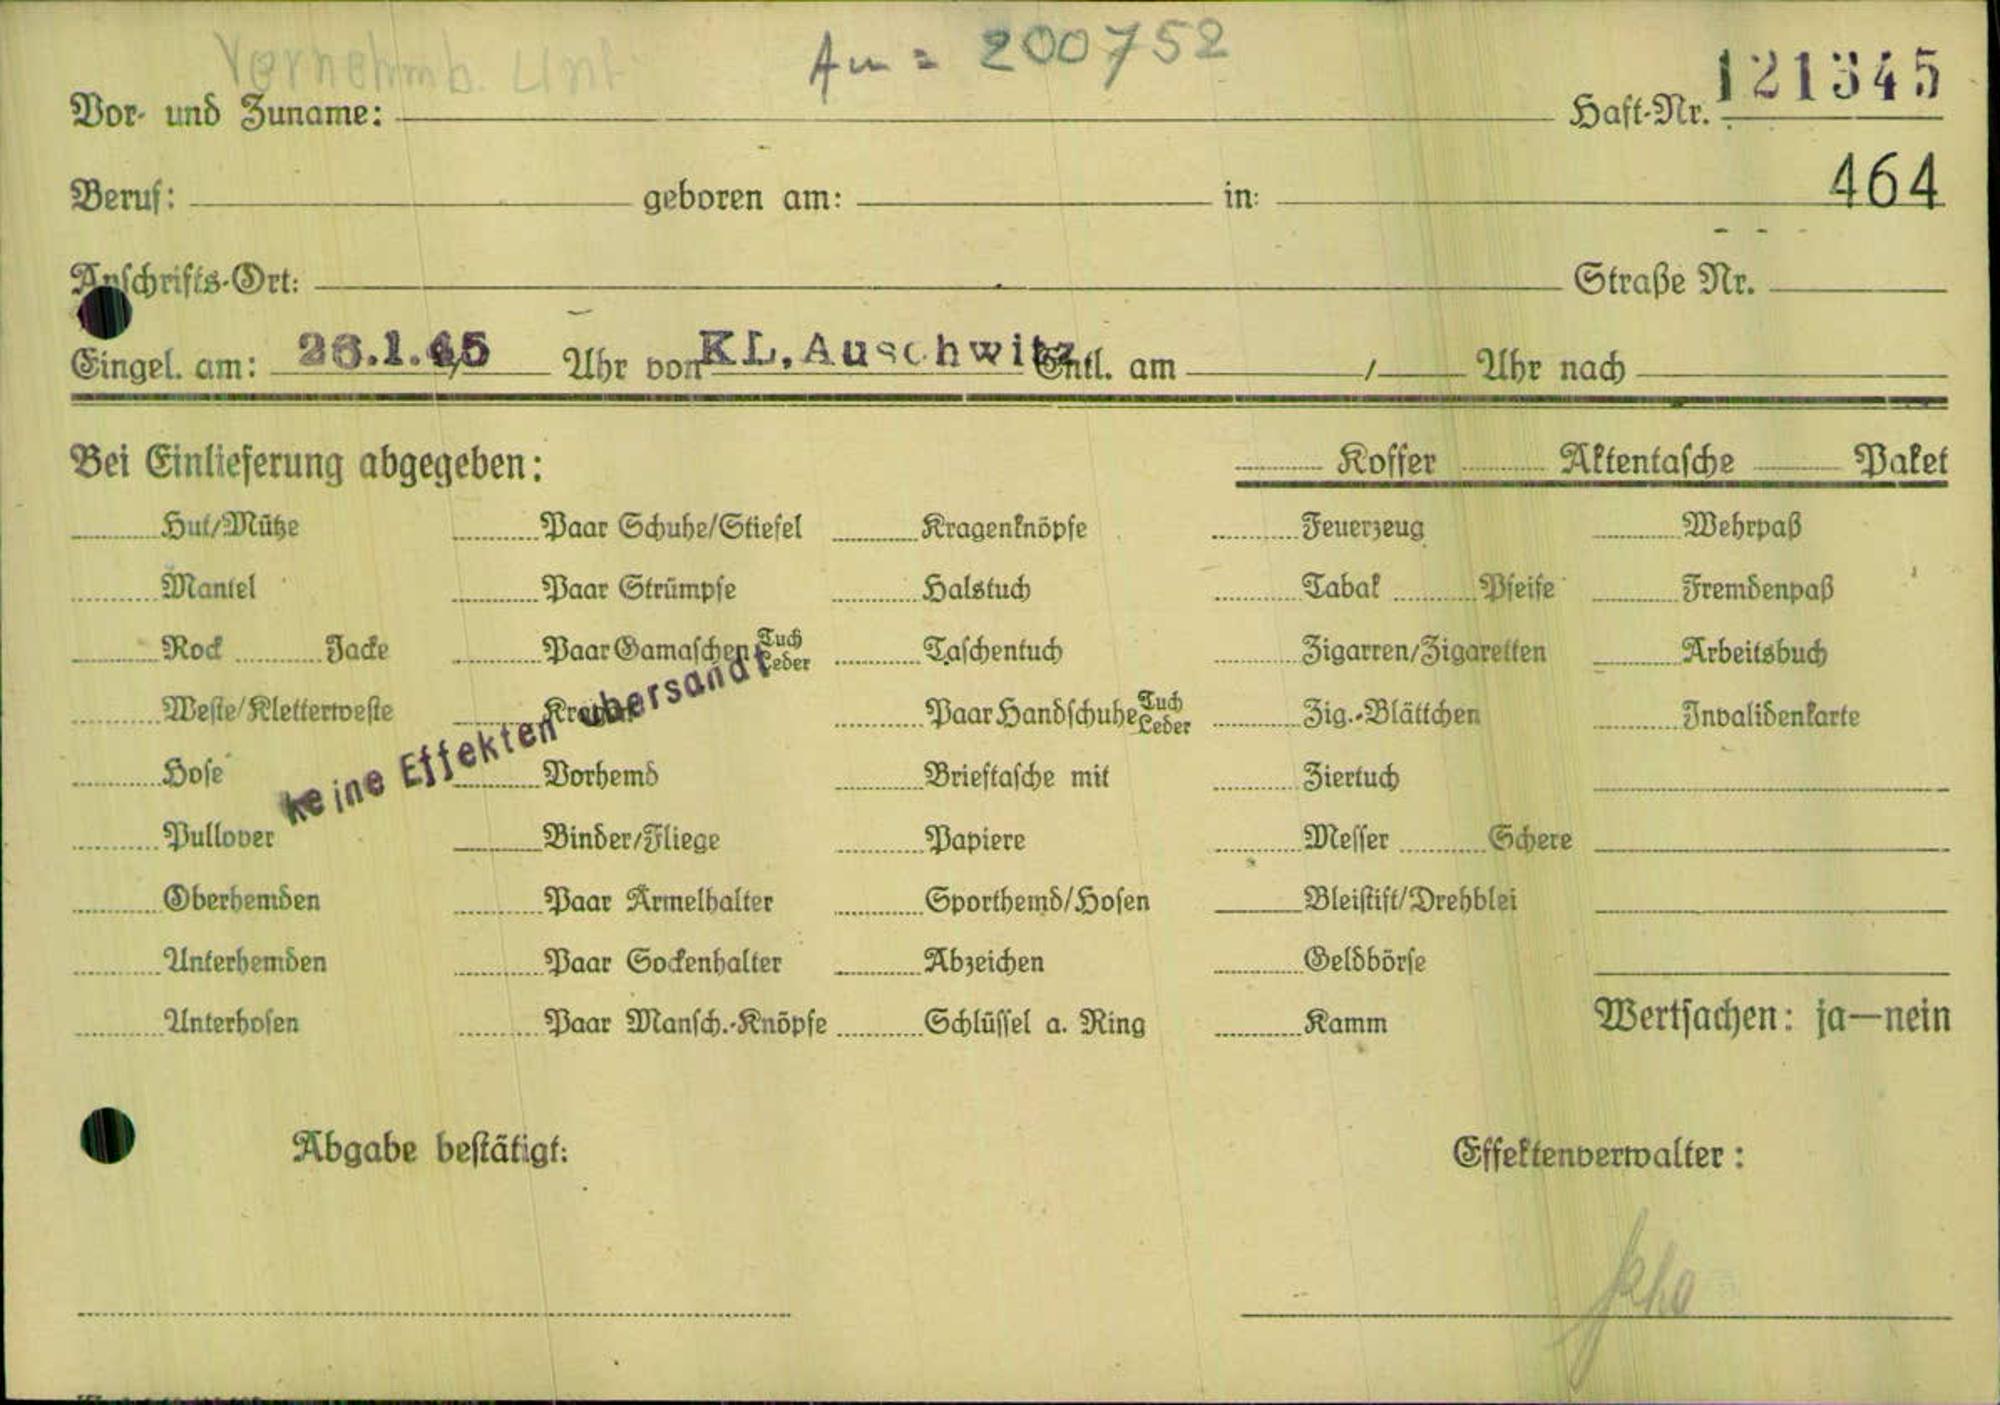 Vernehmb. Unt. Au = 200752
Vor- und Zuname: Haft-Nr. 121345
Beruf: geboren am: in: 464
Anschrifts-Ort: Straße Nr.
Eingel. am: 26.1.45 Uhr von KL. Auschwitz Entl. am / Uhr nach
Bei Einlieferung abgegeben: Koffer Aktentasche Paket
Hut/Mütze Paar Schuhe/Stiefel Kragenknöpfe Feuerzeug Wehrpaß
Mantel Paar Strümpfe Halstuch Tabak Pfeife Fremdenpaß
Rock Jacke Paar Gamaschen Tuch Leder Taschentuch Zigarren/Zigaretten Arbeitsbuch
Weste/Kletterweste Kragen Paar Handschuhe Tuch Leder Zig.-Blättchen Invalidenkarte
keine Effekten übersandt
Hose Vorhemd Brieftasche mit Ziertuch
Pullover Binder/Fliege Papiere Messer Schere
Oberhemden Paar Ärmelhalter Sporthemd/Hosen Bleistift/Drehblei
Unterhemden Paar Sockenhalter Abzeichen Geldbörse
Unterhosen Paar Mansch.-Knöpfe Schlüssel a. Ring Kamm Wertsachen: ja—nein
Abgabe bestätigt: Effektenverwalter: